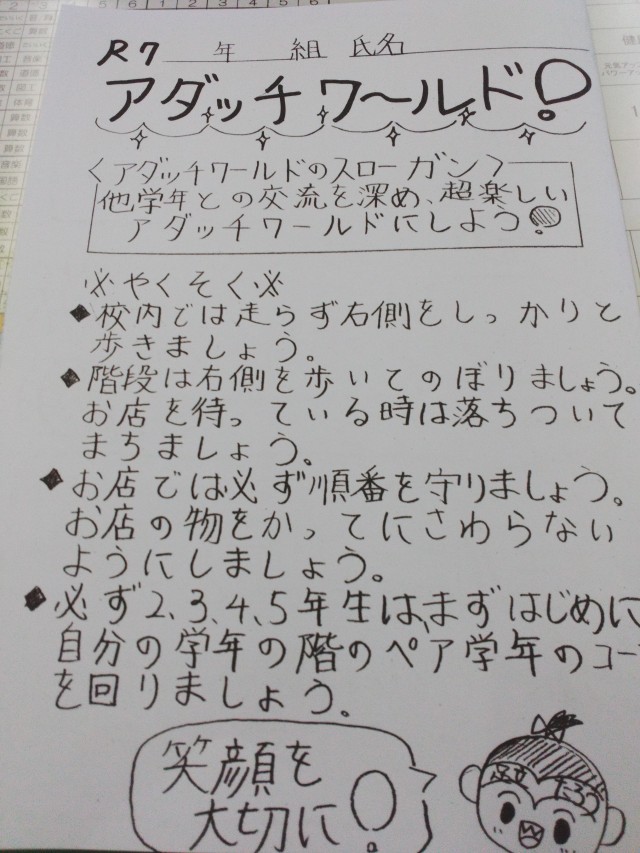 R7 年 組 氏名
アダッチワールド!
<アダッチワールドのスローガン>
他学年との交流を深め、超楽しい
アダッチワールドにしよう!
※やくそく※
◆校内では走らず右側をしっかりと
歩きましょう。
◆階段は右側を歩いてのぼりましょう。
お店を待っている時は落ちついて
まちましょう。
◆お店では必ず順番を守りましょう。
お店の物をかってにさわらない
ようにしましょう。
◆必ず2、3、4、5年生は、まずはじめに
自分の学年の階のペア学年のコー
を回りましょう。
笑顔を
大切に!
足立 たろう